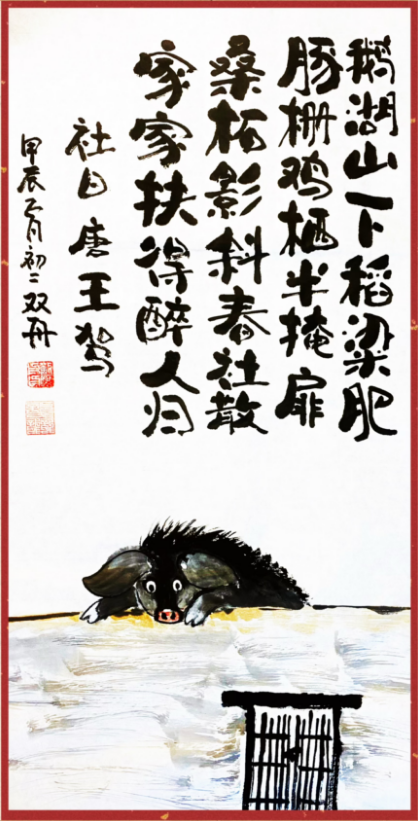 鹅湖山下稻粱肥
豚栅鸡栖半掩扉
桑柘影斜春社散
家家扶得醉人归
社日唐王驾
甲辰正月初二双舟